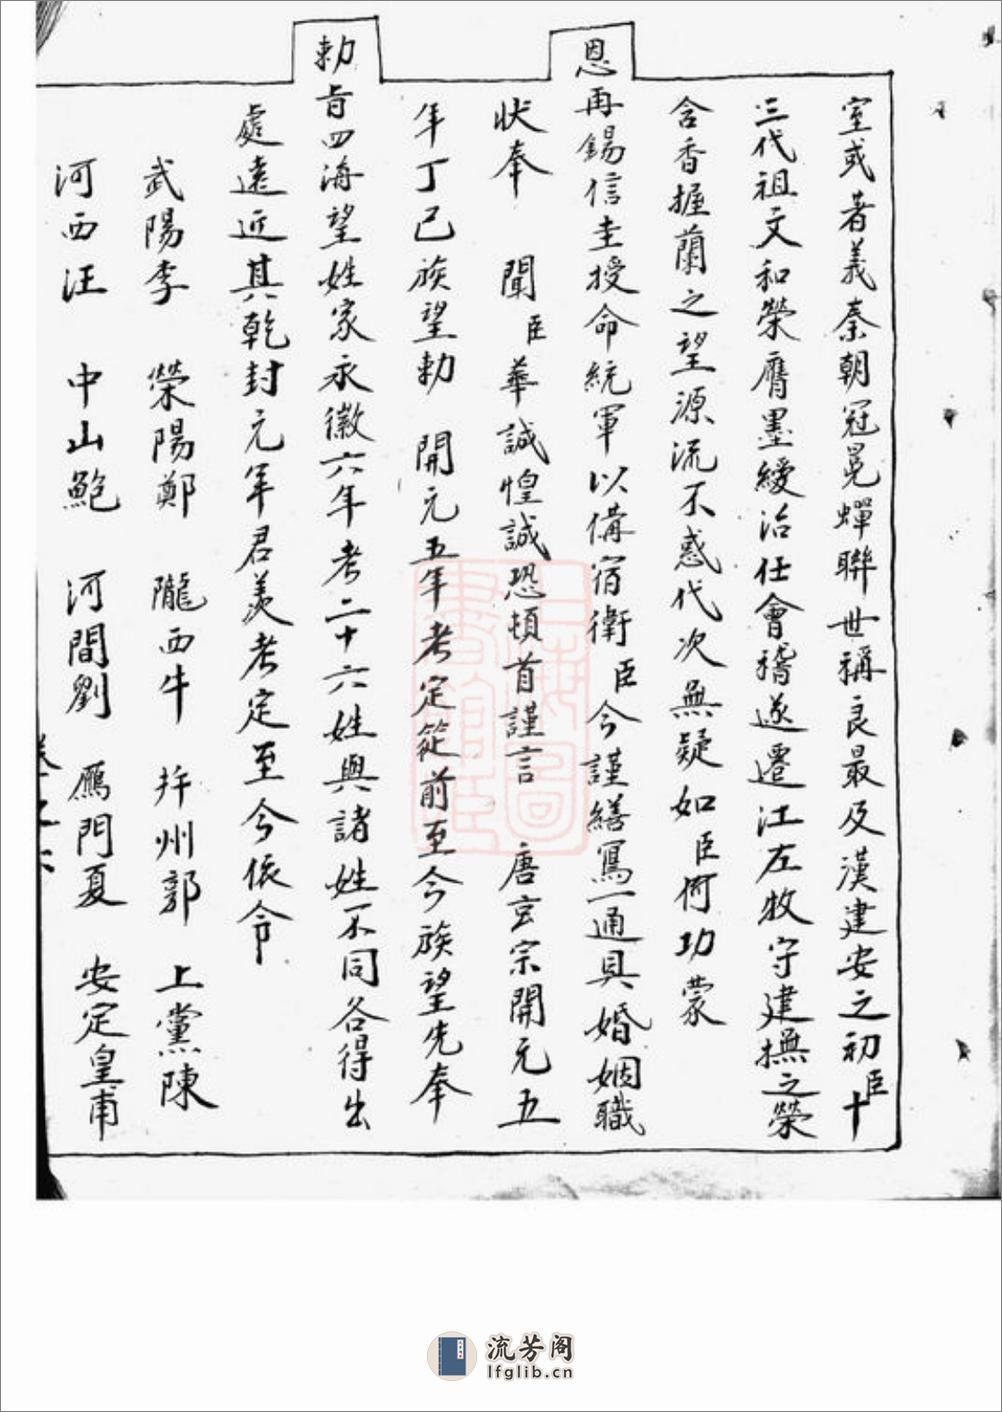 室或著義秦朝冠冕蟬聯世稱良最及漢建安之初臣十
三代祖文和榮膺墨綬治任會稽遂遷江左牧守建撫之榮
含香握蘭之望源流不惑代次無疑如臣何功蒙
恩再錫信圭授命統軍以備宿衛臣今謹繕寫一通具婚姻職
狀奉 聞臣華誠惶誠恐頓首謹言 唐玄宗開元五
年丁巳族望勅 開元五年考定從前至今族望先奉
勅旨四海望姓家永徽六年考二十六姓與諸姓不同各得出
處遠近其乾封元年君羨考定至今依令
武陽李 榮陽鄭 隴西牛 并州郭 上黨陳
河西汪 中山鮑 河間劉 鴈門夏 安定皇甫
上海圖書館藏
流芳阁
lfglib.cn